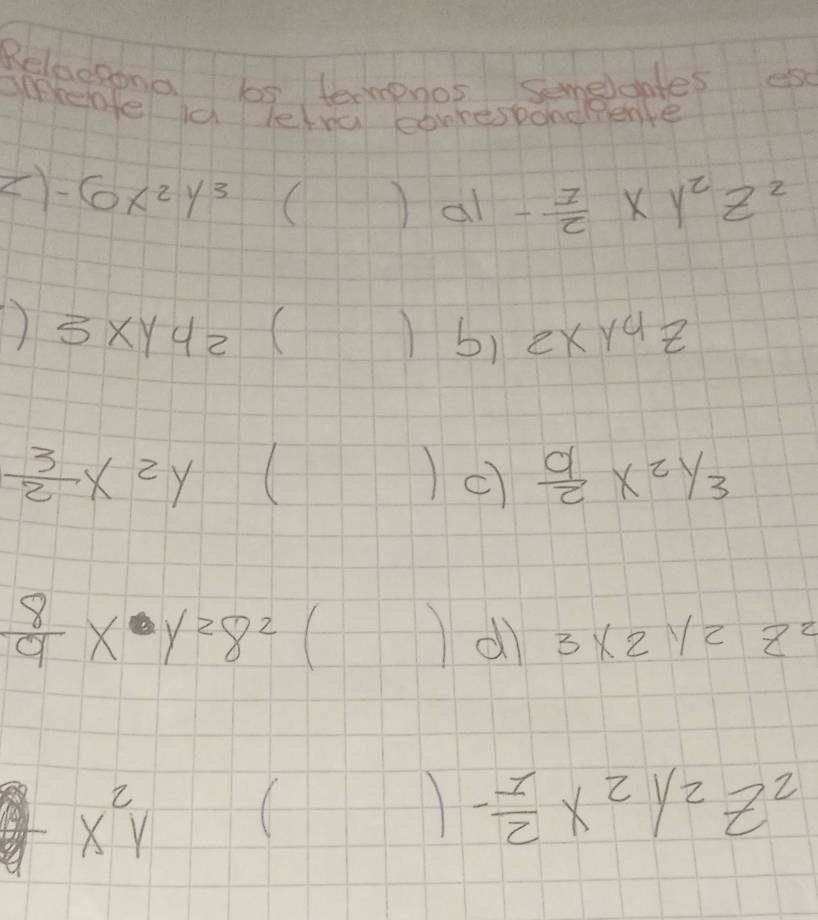 Relaciona los terminos semejantes esc
la letra correspondiente
-6x²y³ ( ) a) -1/2 xy²z²
) 5xy4z ( ) b) 2xy4z
3/2 x²y ( ) c) 9/2 x²y3
8/9 x y²8² ( ) d) 3x2y2 z²
x²y ( ) -1/2 x²y²z²